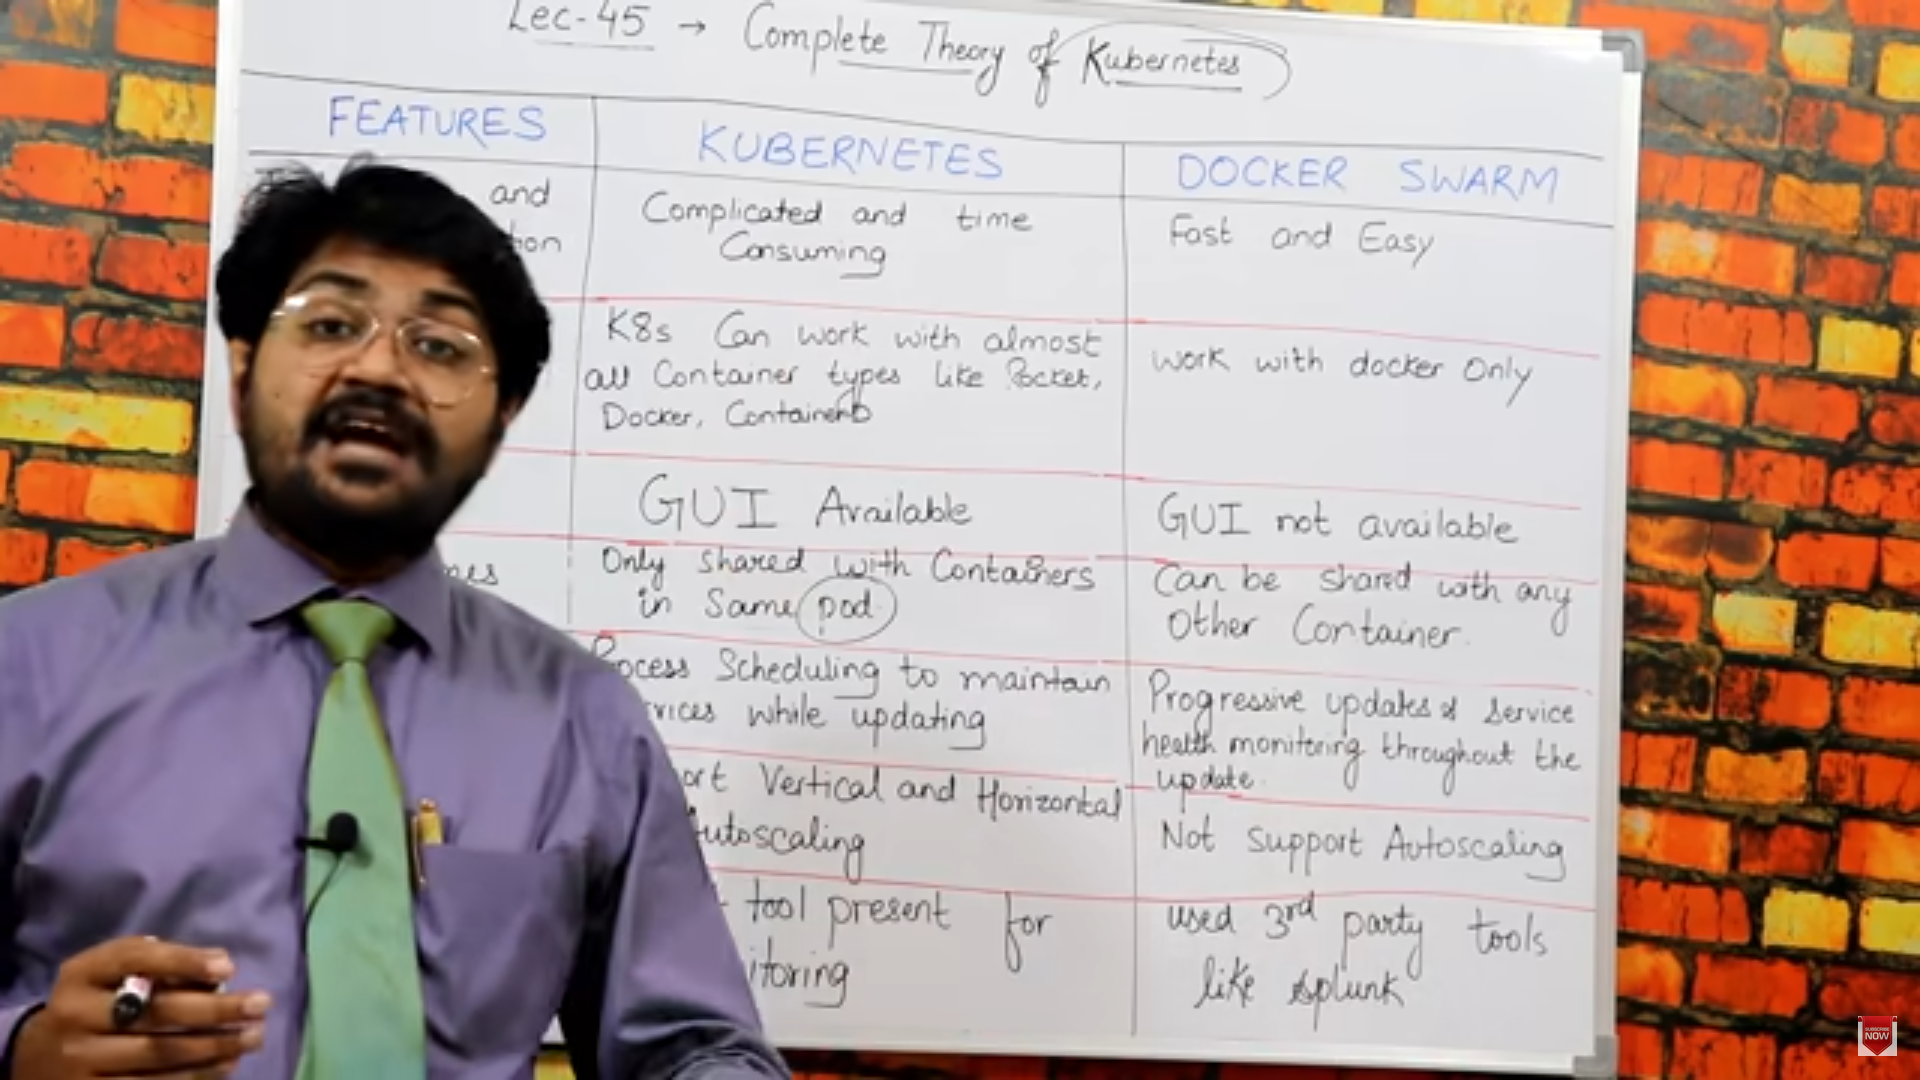 Lec-45 → Complete Theory of Kubernetes
FEATURES
KUBERNETES
DOCKER SWARM
and
Complicated and time
Consuming
Fast and Easy
K8s Can work with almost
all Container types like Rocket,
Docker, ContainerD
work with docker Only
GUI Available
GUI not available
Only shared with Containers
in Same pod
Can be shared with any
Other Container.
Process Scheduling to maintain
while updating
Progressive updates & Service
health monitoring throughout the
update.
Vertical and Horizontal
Autoscaling
Not support Autoscaling
tool present for
used 3rd party tools
like splunk
SUBSCRIBE
NOW